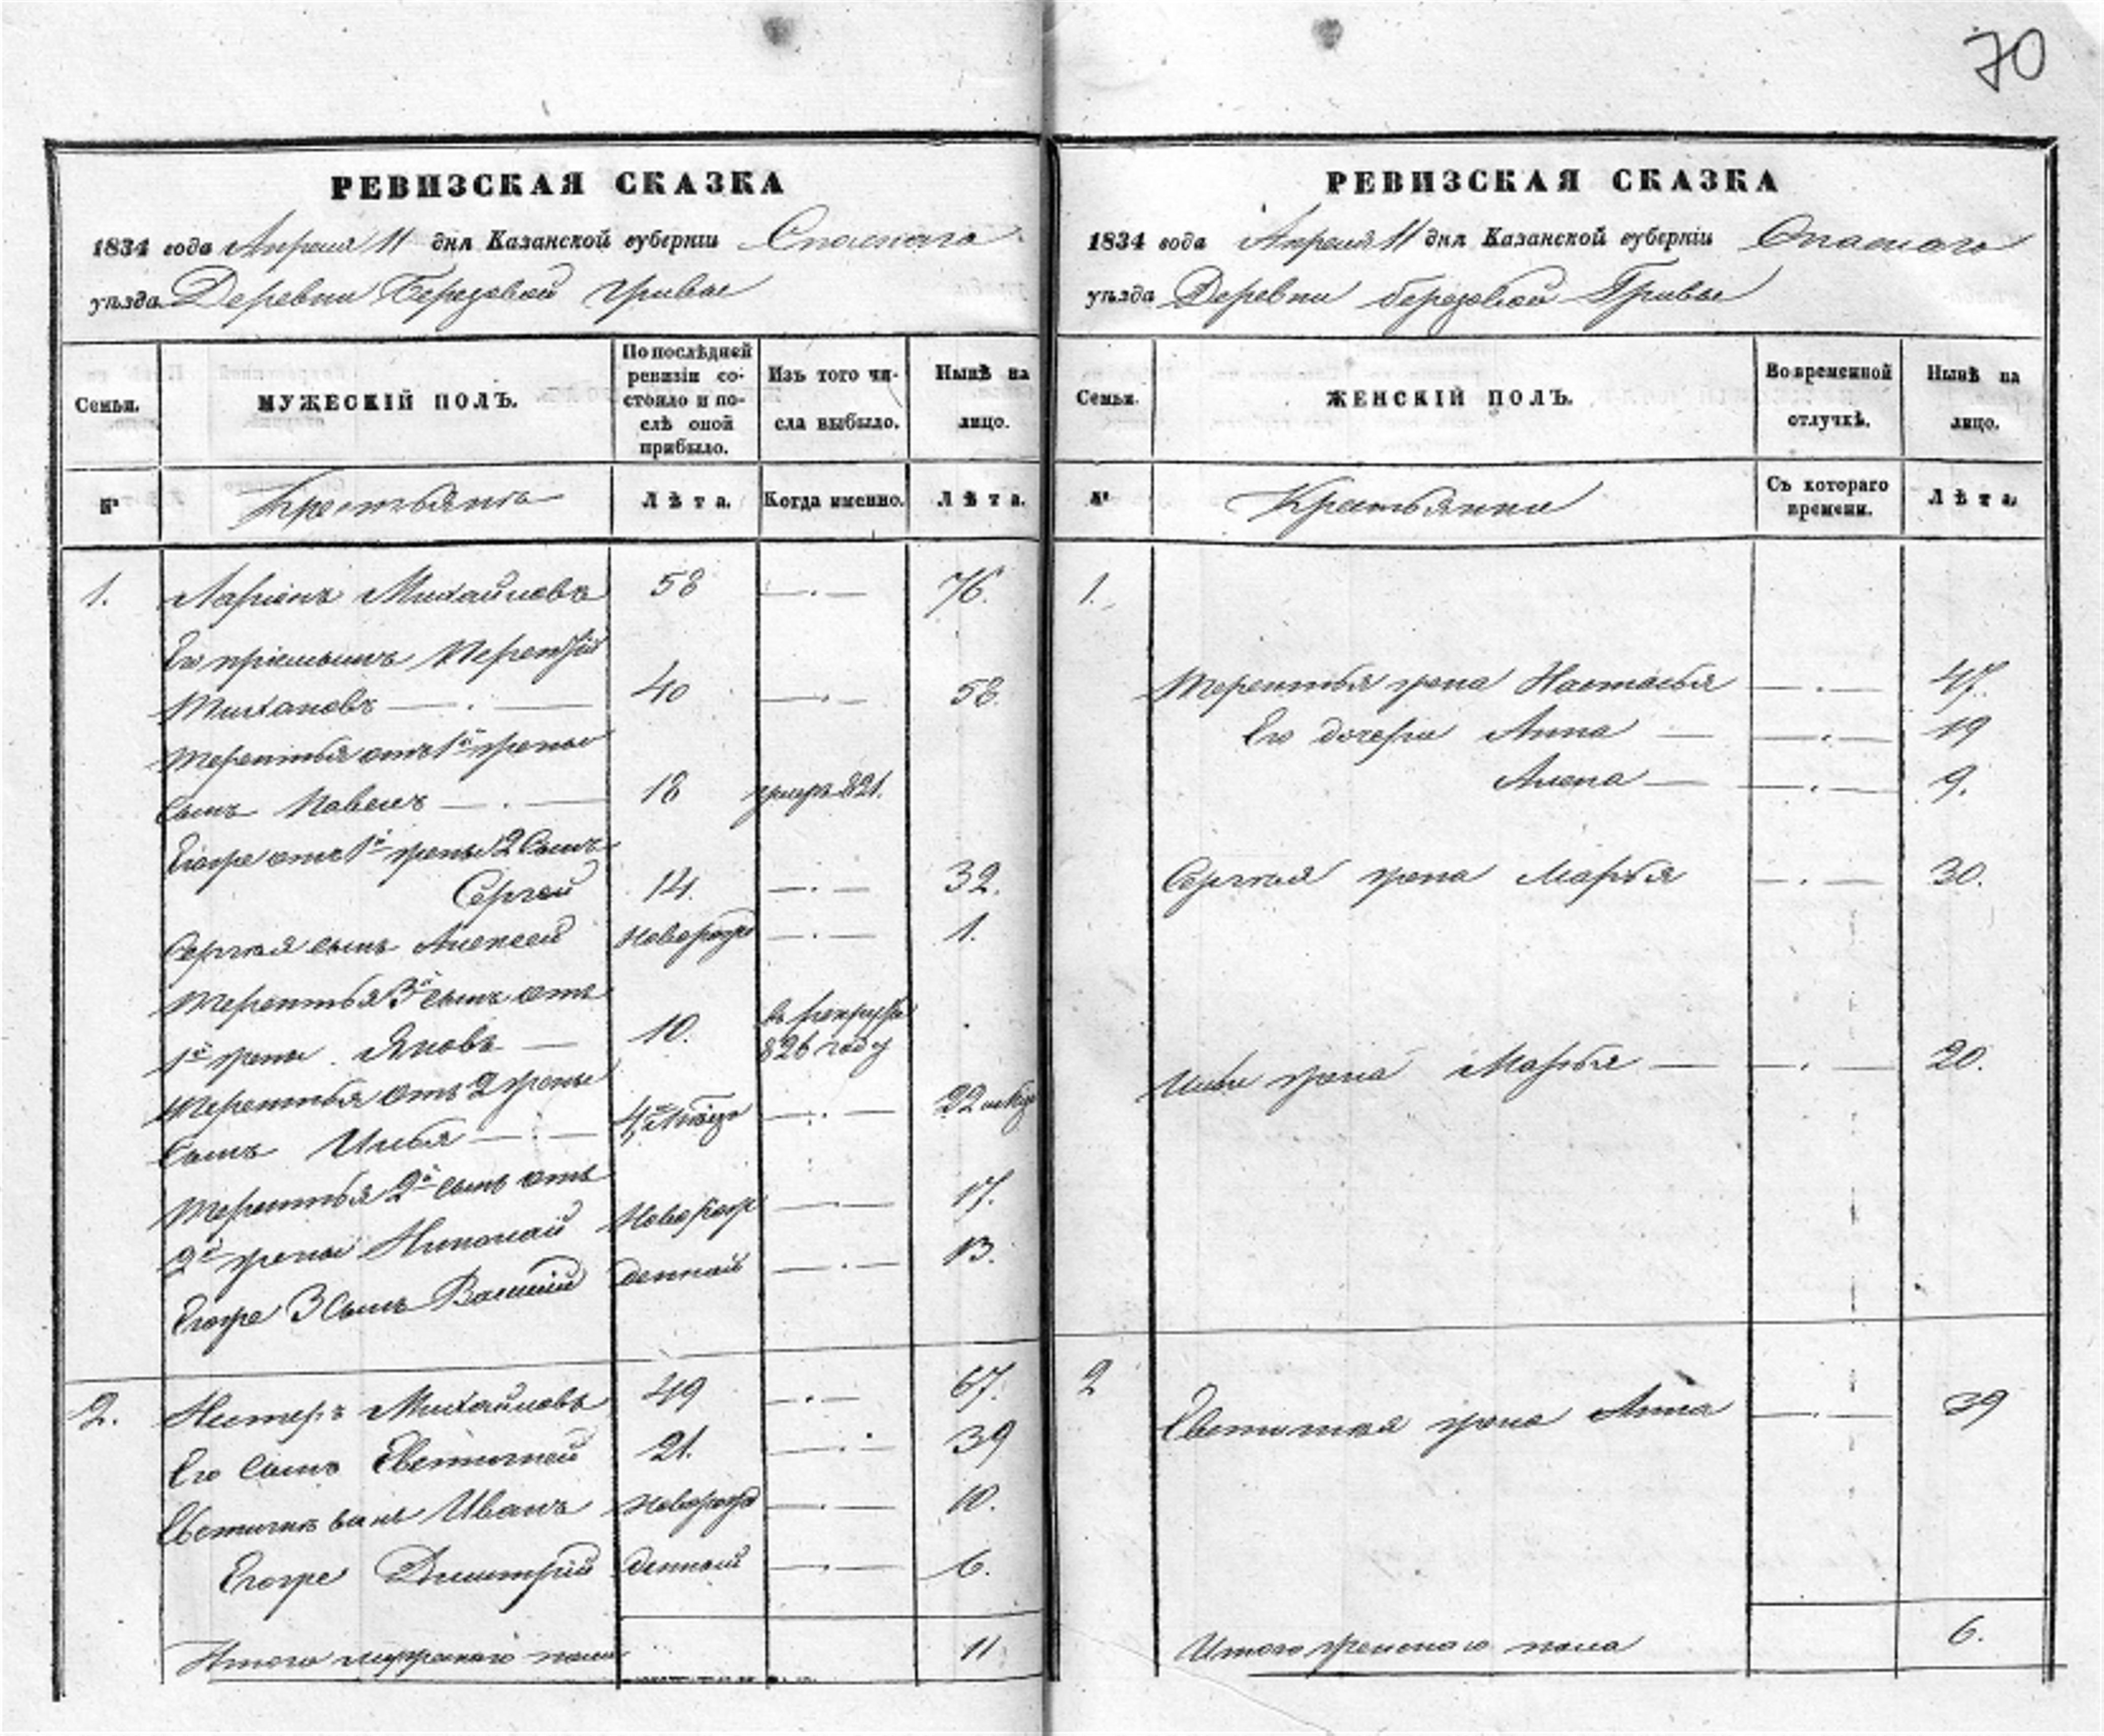 70
РЕВИЗСКАЯ СКАЗКА
1834 года Апреля 11 дня Казанской губерніи Спаскаго
уѣзда Деревни Березовой Гривы
Семьи.
МУЖЕСКІЙ ПОЛЪ.
По послѣдней ревизіи со-
стояло и по-
слѣ оной
прибыло.
Изъ того чи-
сла выбыло.
Нынѣ на
лицо.
№
Крестьянъ
Лѣта.
Когда именно.
Лѣта.
1. Ларіонъ Михайловъ 58 —.— 76.
Его пріемышъ Терентій
40 —.— 58.
Терентья отъ 1й жены
сынъ Павелъ —.— 18 умеръ 821.
Егоже отъ 1й жены 2 сынъ
Сергей 14. —.— 32.
Сергея сынъ Алексей новорож —.— 1.
Терентья 3й сынъ отъ
1й жены Яковъ — 10. в рекруты
826 году
Терентья отъ 2 жены
сынъ Илья —.— —.— 22
Терентья 2й сынъ отъ
2й жены Николай Новорож —.— 17.
Егоже 3 сынъ Василий денной —.— 13.
2. Нестеръ Михайловъ 49 —.— 67.
Его сынъ Евстигней 21. —.— 39
Евстигнея сынъ Иванъ новорож —.— 10.
Егоже Дмитрій денной —.— 6.
Итого мужескаго пола 11
РЕВИЗСКАЯ СКАЗКА
1834 года Апреля 11 дня Казанской губерніи Спаскаго
уѣзда Деревни березовой Гривы
Семьи.
ЖЕНСКІЙ ПОЛЪ.
Во временной
отлучкѣ.
Нынѣ на
лицо.
№
Крестьянки
Съ котораго
времени.
Лѣта.
1.
Терентья жена Настасья —.— 47.
Его дочери Анна — —.— 19
Алена — —.— 9.
Сергея жена Марья —.— 30.
Ильи жена Марья — —.— 20.
2
Евстигнея жена Анна —.— 39
Итого женскаго пола 6.